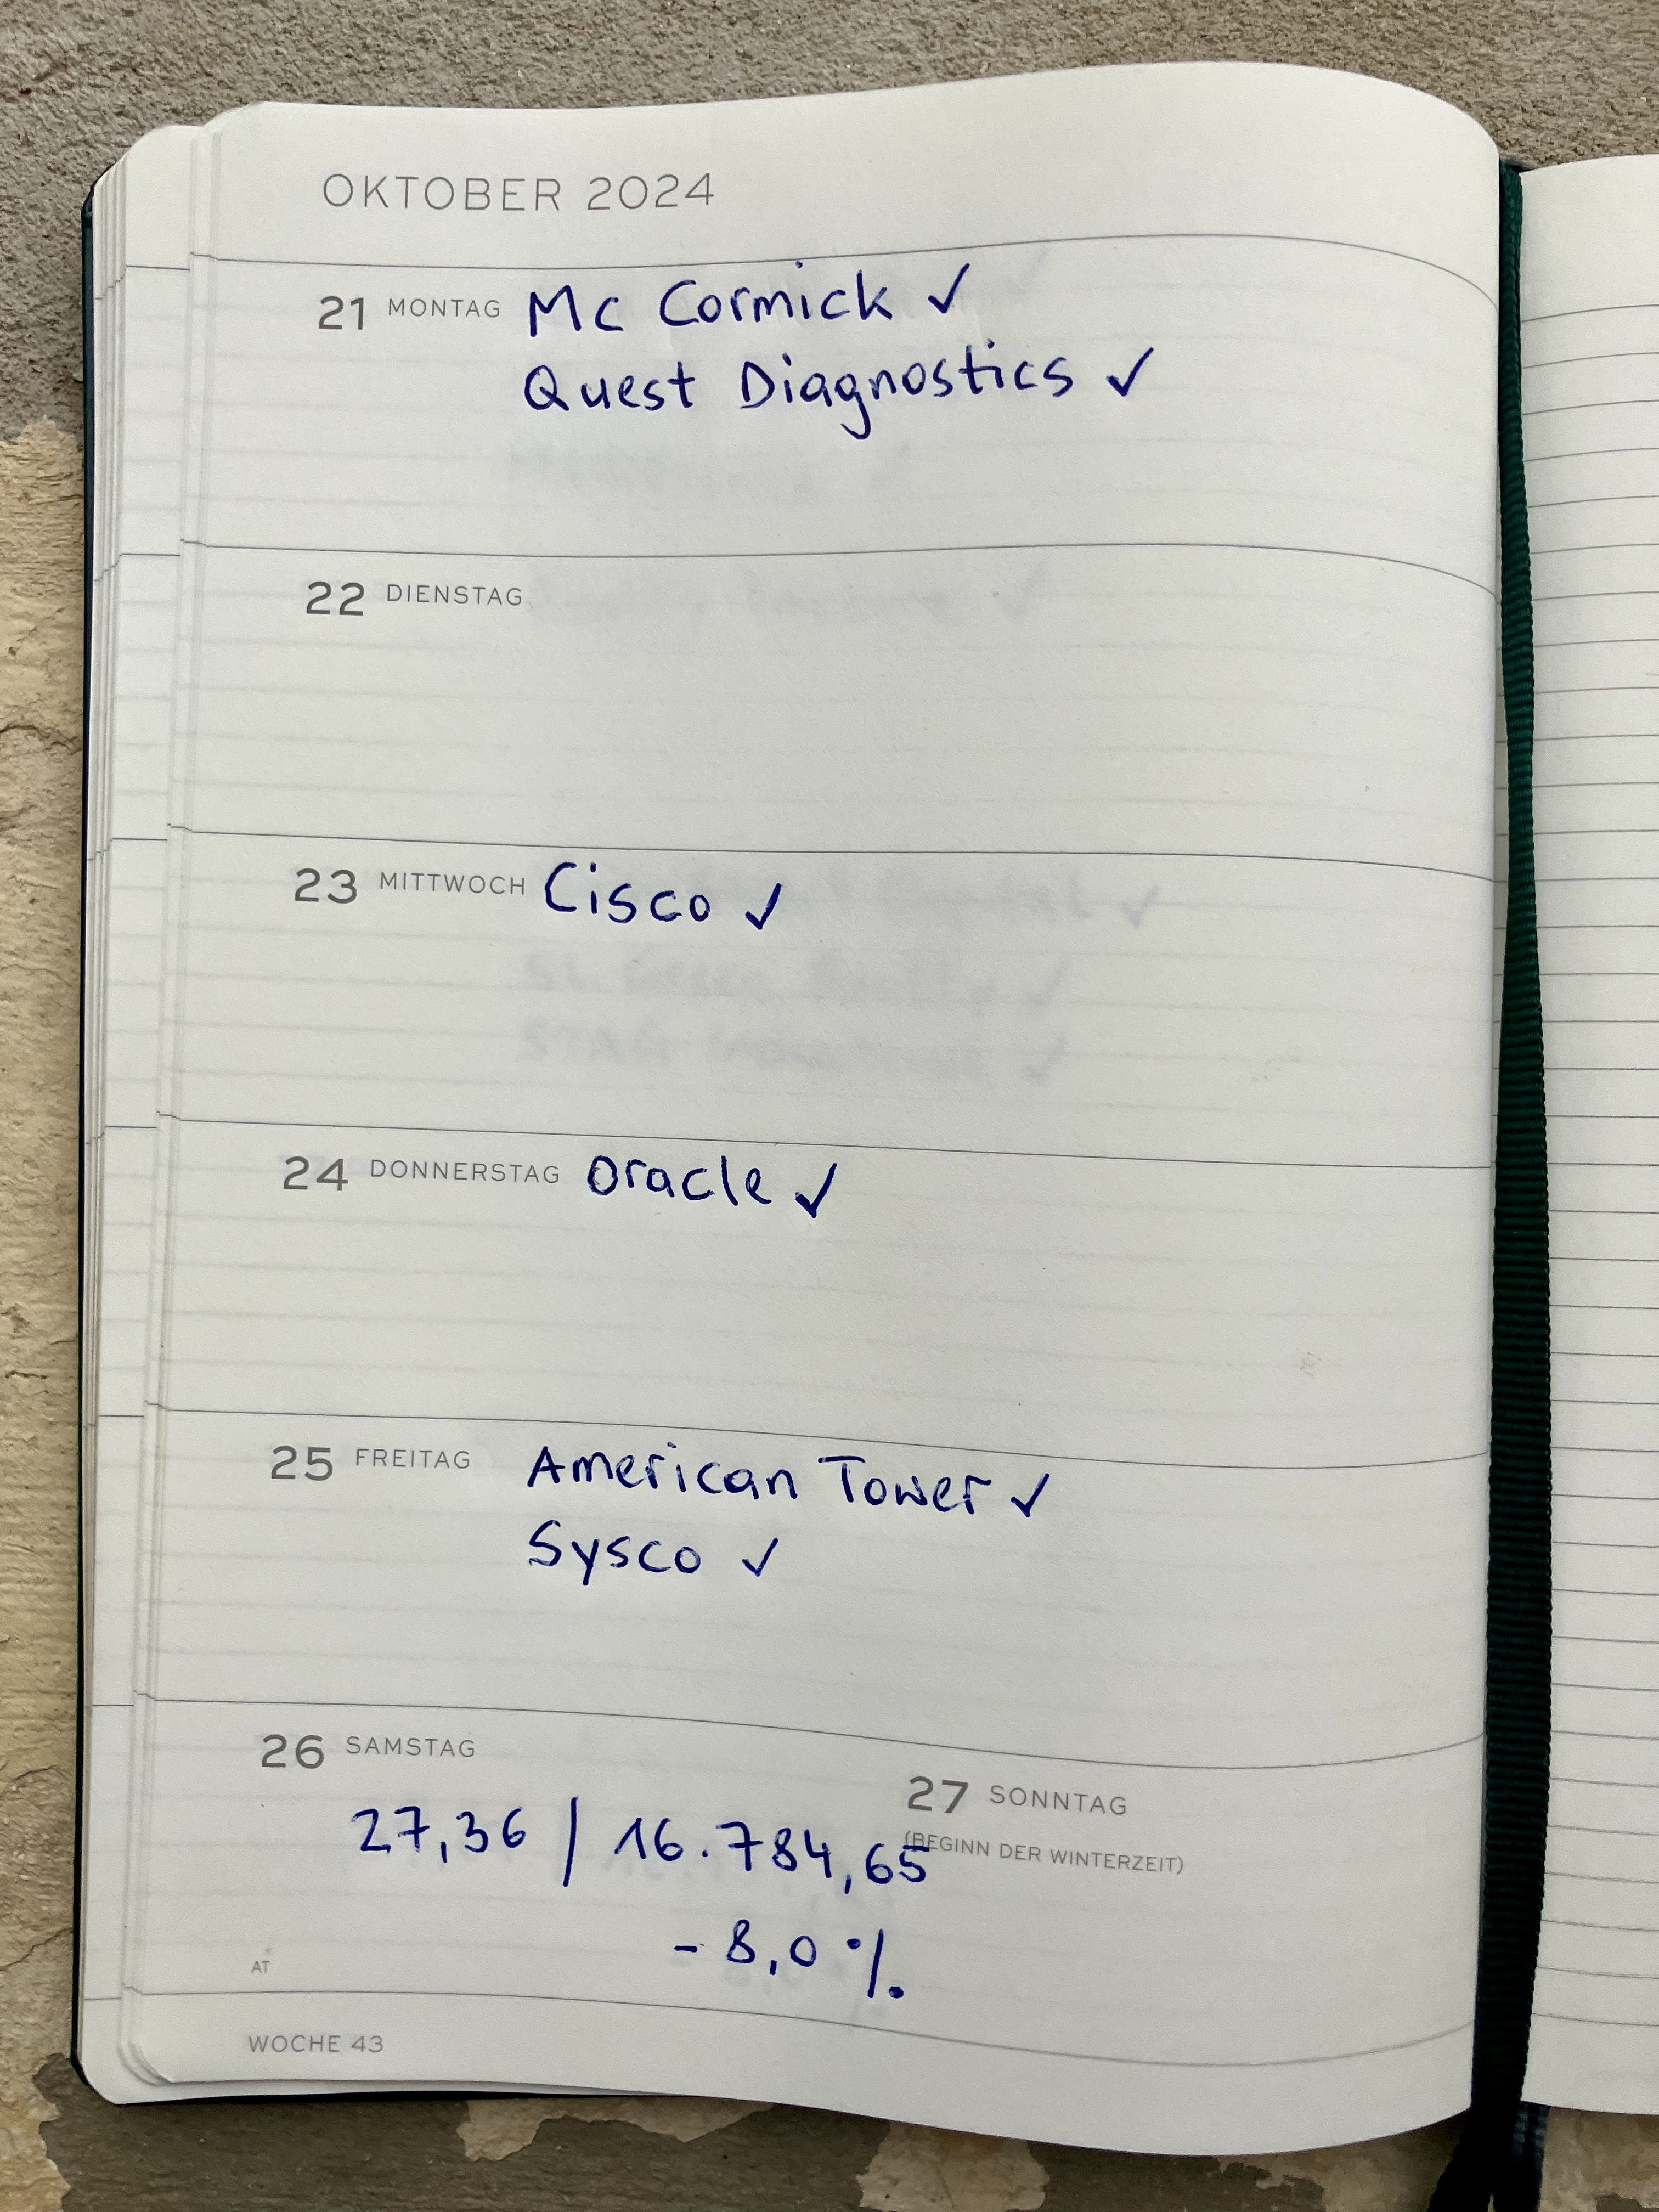 OKTOBER 2024
21 MONTAG Mc Cormick ✓
Quest Diagnostics ✓
22 DIENSTAG
23 MITTWOCH Cisco ✓
24 DONNERSTAG Oracle ✓
25 FREITAG American Tower ✓
Sysco ✓
26 SAMSTAG
27 SONNTAG
(BEGINN DER WINTERZEIT)
27,36 / 16.784,65
- 8,0 %
AT
WOCHE 43